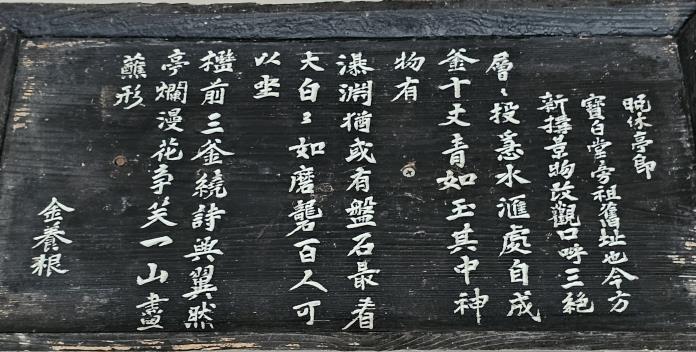 晩休亭卽
寶白堂旁祖舊址也今方
新搆景物改觀口呼三絶
層〻投急水滙處自成
釜十丈靑如玉其中神
物有
瀑淵猶或有盤石最看
大白〻如磨礱百人可
以坐
檻前三釜繞詩與翼然
亭爛漫花爭笑一山畵
蘸形
金養根